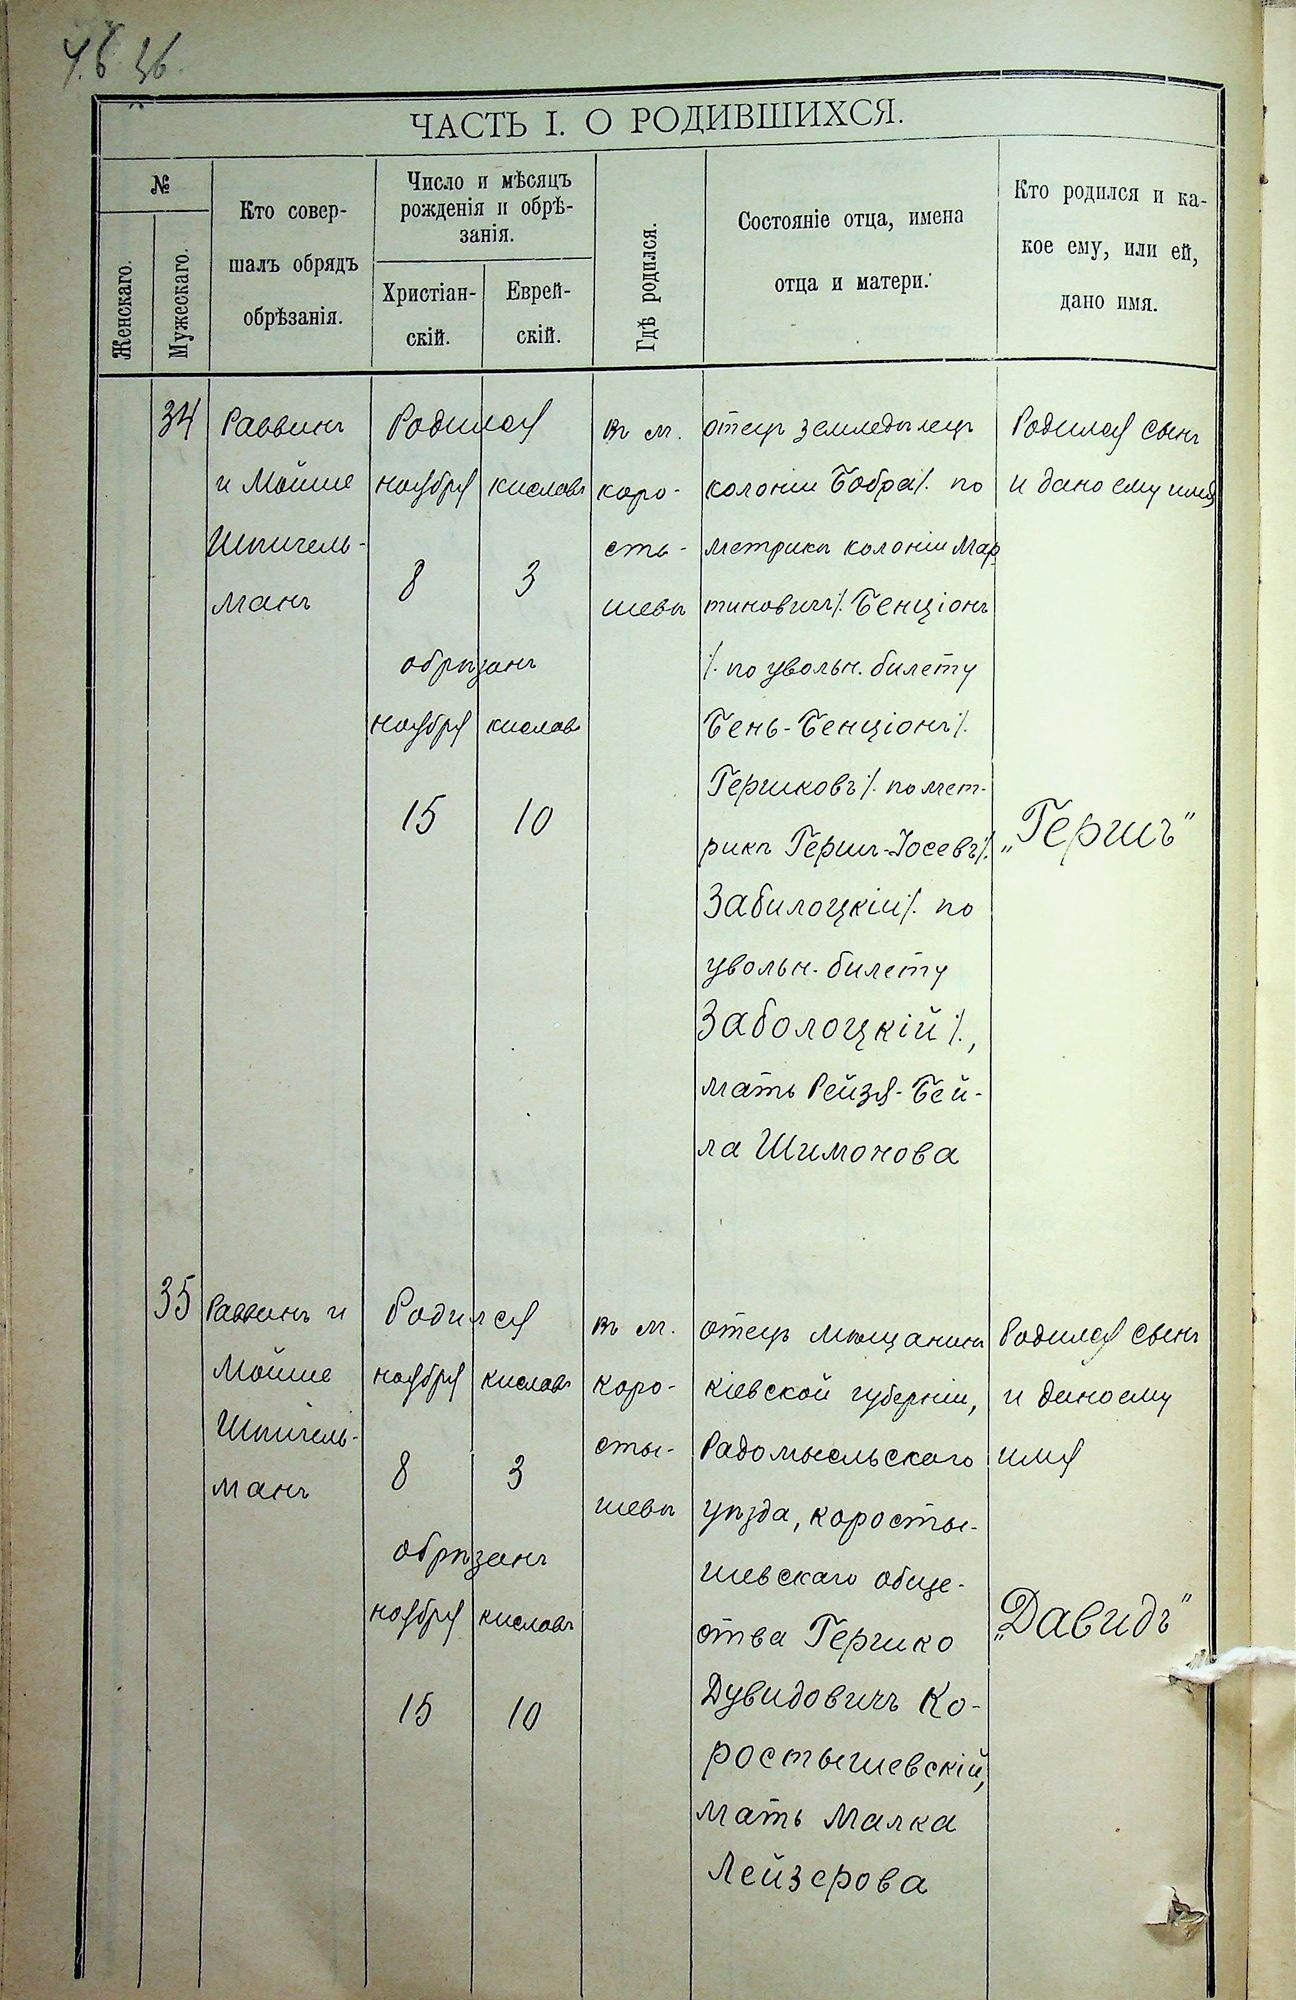 ЧАСТЬ I. О РОДИВШИХСЯ.
№
Женскаго.
Мужескаго.
Кто совер-
шалъ обрядъ
обрѣзанія.
Число и мѣсяцъ
рожденія и обрѣ-
занія.
Христіан-
скій.
Еврей-
скій.
Гдѣ родился.
Состояніе отца, имена
отца и матери.
Кто родился и ка-
кое ему, или ей,
дано имя.
34
Раввинъ
и Мойше
Шпигель-
манъ
Родился
ноября кислевъ
8 3
обрѣзанъ
ноября кислевъ
15 10
въ м.
Коро-
сты-
шевѣ
отецъ земледѣлецъ
колоніи Бобра ⁒ по
метрикѣ колоніи Мар
тиновичъ ⁒ Бенціонъ
⁒ по увольн. билету
Бень-Бенціонъ ⁒
Гершковъ ⁒ по мет-
рикѣ Герш-Іосевъ ⁒
Забилоцкій ⁒ по
увольн. билету
Заболоцкій ⁒,
мать Рейзя-Бей-
ла Шимонова
Родился сынъ
и дано ему имя
„Гершъ"
35
Раввинъ и
Мойше
Шпигель-
манъ
Родился
ноября кислевъ
8 3
обрѣзанъ
ноября кислевъ
15 10
въ м.
Коро-
сты-
шевѣ
отецъ мѣщанинъ
кіевской губерніи,
Радомысльскаго
уѣзда, коросты-
шевскаго обще-
ства Гершко
Дувидовичъ Ко-
ростышевскій,
мать Малка
Лейзерова
Родился сынъ
и дано ему
имя
„Давидъ"